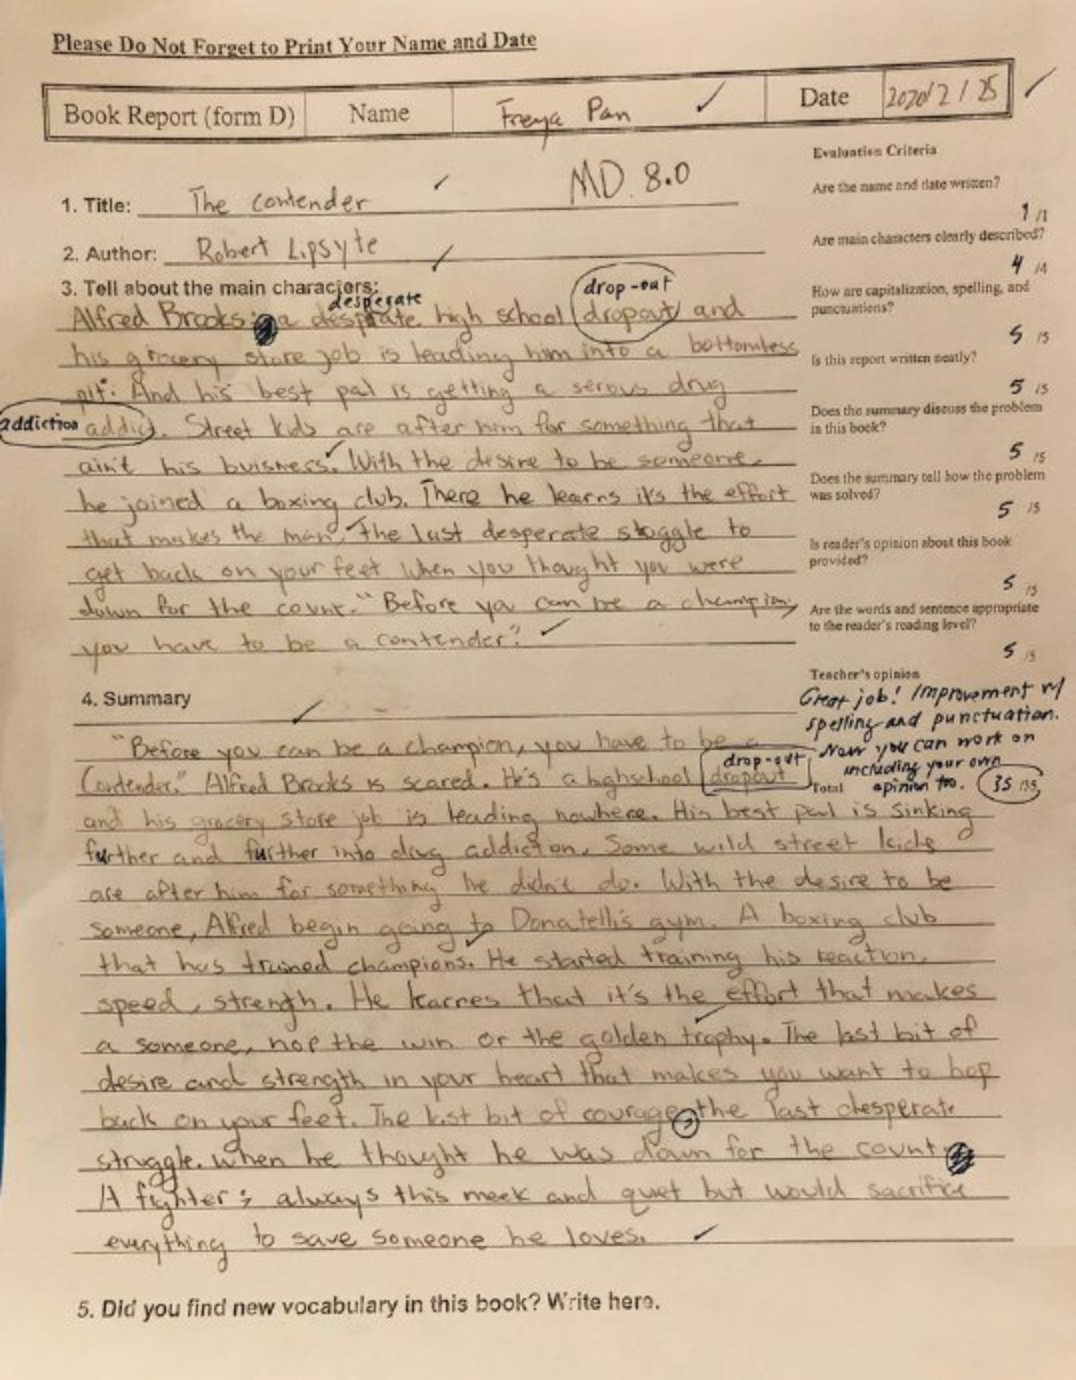 Please Do Not Forget to Print Your Name and Date
Book Report (form D) Name Freya Pan Date 2020/2/25
MD. 8.0
1. Title: The contender
2. Author: Robert Lipsyte
3. Tell about the main characters:
desperate
drop-out
Alfred Brooks: a desprate high school dropout and
his grocery store job is leading him into a bottomless
pit. And his best pal is getting a serous drug
addiction
addict. Street kids are after him for something that
ain't his buisness. With the desire to be someone
he joined a boxing club. There he learns it's the effort
that makes the man, the last desperate stoggle to
get back on your feet when you thought you were
down for the count. "Before you can be a champion,
you have to be a contender".
4. Summary
"Before you can be a champion, you have to be a
drop-out
Contender." Alfred Brooks is scared. He's a highschool dropout
and his grocery store job is leading nowhere. His best pal is sinking
further and further into drug addiction. Some wild street kids
are after him for something he didn't do. With the desire to be
someone, Alfred begin going to Donatelli's gym. A boxing club
that has trained champions. He started training his reaction,
speed, strength. He learnes that it's the effort that makes
a someone, not the win or the golden trophy. The last bit of
desire and strength in your heart that makes you want to hop
back on your feet. The last bit of courage, the last desperate
struggle. when he thought he was down for the count
A fighter is always this meek and quiet but would sacrifice
everything to save someone he loves.
5. Did you find new vocabulary in this book? Write here.
Evaluation Criteria
Are the name and date written?
1 /1
Are main characters clearly described?
4 /4
How are capitalization, spelling, and
punctuations?
5 /5
Is this report written neatly?
5 /5
Does the summary discuss the problem
in this book?
5 /5
Does the summary tell how the problem
was solved?
5 /5
Is reader's opinion about this book
provided?
5 /5
Are the words and sentence appropriate
to the reader's reading level?
5 /5
Teacher's opinion
Great job! Improvement w/
spelling and punctuation.
Now you can work on
including your own
opinion too.
Total 35 /35